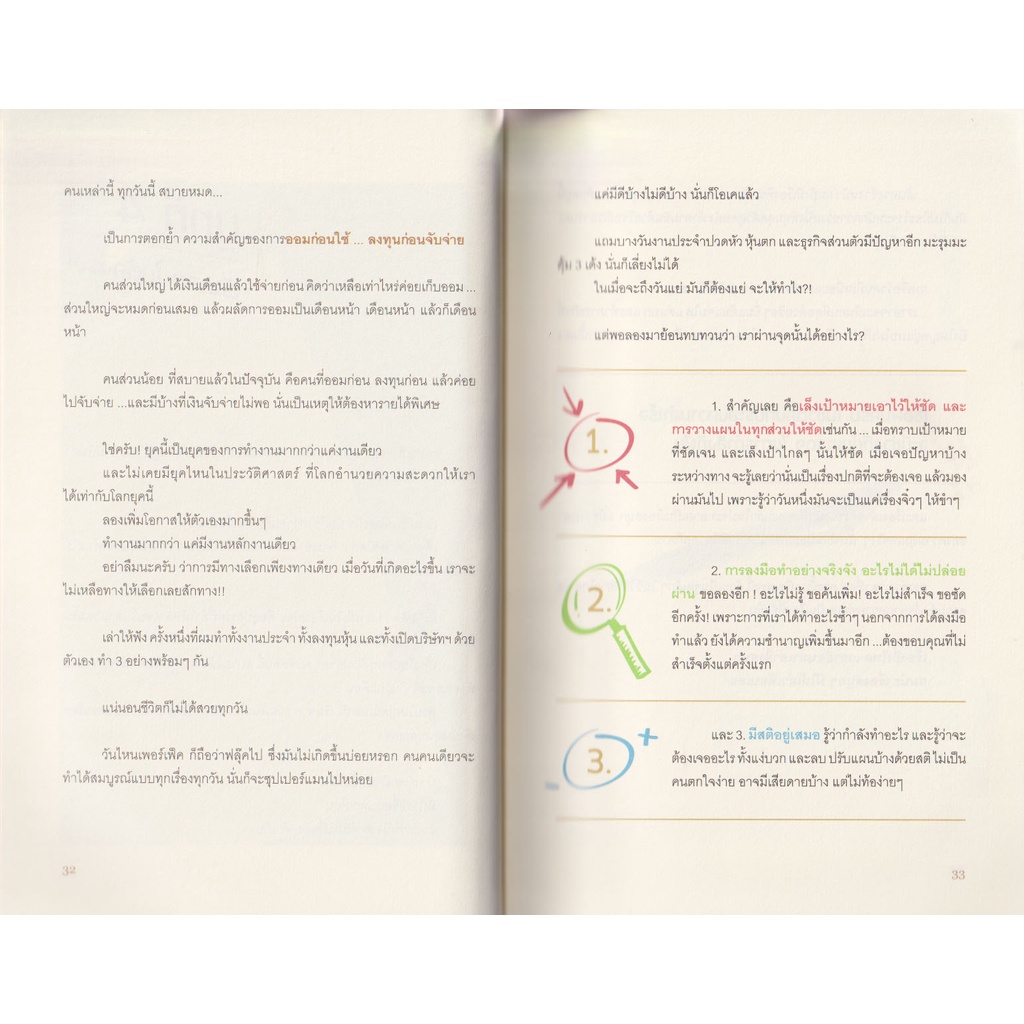 คนเหล่านี้ ทุกวันนี้ สบายหมด...
เป็นการตอกย้ำ ความสำคัญของการออมก่อนใช้ ... ลงทุนก่อนจับจ่าย
คนส่วนใหญ่ ได้เงินเดือนแล้วใช้จ่ายก่อน คิดว่าเหลือเท่าไหร่ค่อยเก็บออม ...
ส่วนใหญ่จะหมดก่อนเสมอ แล้วผลัดการออมเป็นเดือนหน้า เดือนหน้า แล้วก็เดือน
หน้า
คนส่วนน้อย ที่สบายแล้วในปัจจุบัน คือคนที่ออมก่อน ลงทุนก่อน แล้วค่อย
ไปจับจ่าย ...และมีบ้างที่เงินจับจ่ายไม่พอ นั่นเป็นเหตุให้ต้องหารายได้พิเศษ
ใช่ครับ! ยุคนี้เป็นยุคของการทำงานมากกว่าแค่งานเดียว
และไม่เคยมียุคไหนในประวัติศาสตร์ ที่โลกอำนวยความสะดวกให้เรา
ได้เท่ากับโลกยุคนี้
ลองเพิ่มโอกาสให้ตัวเองมากขึ้นๆ
ทำงานมากกว่า แค่มีงานหลักงานเดียว
อย่าลืมนะครับ ว่าการมีทางเลือกเพียงทางเดียว เมื่อวันที่เกิดอะไรขึ้น เราจะ
ไม่เหลือทางให้เลือกเลยสักทาง!!
เล่าให้ฟัง ครั้งหนึ่งที่ผมทำทั้งงานประจำ ทั้งลงทุนหุ้น และทั้งเปิดบริษัทฯ ด้วย
ตัวเอง ทำ 3 อย่างพร้อมๆ กัน
แน่นอนชีวิตก็ไม่ได้สวยทุกวัน
วันไหนเพอร์เฟ็ค ก็ถือว่าฟลุ๊คไป ซึ่งมันไม่เกิดขึ้นบ่อยหรอก คนคนเดียวจะ
ทำได้สมบูรณ์แบบทุกเรื่องทุกวัน นั่นก็จะซุปเปอร์แมนไปหน่อย
32
แค่มีดีบ้างไม่ดีบ้าง นั่นก็โอเคแล้ว
แถมบางวันงานประจำปวดหัว หุ้นตก และธุรกิจส่วนตัวมีปัญหาอีก มะรุมมะ
ตุ้ม 3 เด้ง นั่นก็เลี่ยงไม่ได้
ในเมื่อจะถึงวันแย่ มันก็ต้องแย่ จะให้ทำไง?!
แต่พอลองมาย้อนทบทวนว่า เราผ่านจุดนั้นได้อย่างไร?
1.
1. สำคัญเลย คือเล็งเป้าหมายเอาไว้ให้ชัด และ
การวางแผนในทุกส่วนให้ชัดเช่นกัน ... เมื่อทราบเป้าหมาย
ที่ชัดเจน และเล็งเป้าไกลๆ นั้นให้ชัด เมื่อเจอปัญหาบ้าง
ระหว่างทาง จะรู้เลยว่านั่นเป็นเรื่องปกติที่จะต้องเจอ แล้วมอง
ผ่านมันไป เพราะรู้ว่าวันหนึ่งมันจะเป็นแค่เรื่องจิ๋วๆ ให้ขำๆ
2.
2. การลงมือทำอย่างจริงจัง อะไรไม่ได้ไม่ปล่อย
ผ่าน ขอลองอีก ! อะไรไม่รู้ ขอค้นเพิ่ม! อะไรไม่สำเร็จ ขอซัด
อีกครั้ง! เพราะการที่เราได้ทำอะไรซ้ำๆ นอกจากการได้ลงมือ
ทำแล้ว ยังได้ความชำนาญเพิ่มขึ้นมาอีก ...ต้องขอบคุณที่ไม่
สำเร็จตั้งแต่ครั้งแรก
3.
และ 3. มีสติอยู่เสมอ รู้ว่ากำลังทำอะไร และรู้ว่าจะ
ต้องเจออะไร ทั้งแง่บวก และลบ ปรับแผนบ้างด้วยสติ ไม่เป็น
คนตกใจง่าย อาจมีเสียดายบ้าง แต่ไม่ท้อง่ายๆ
33